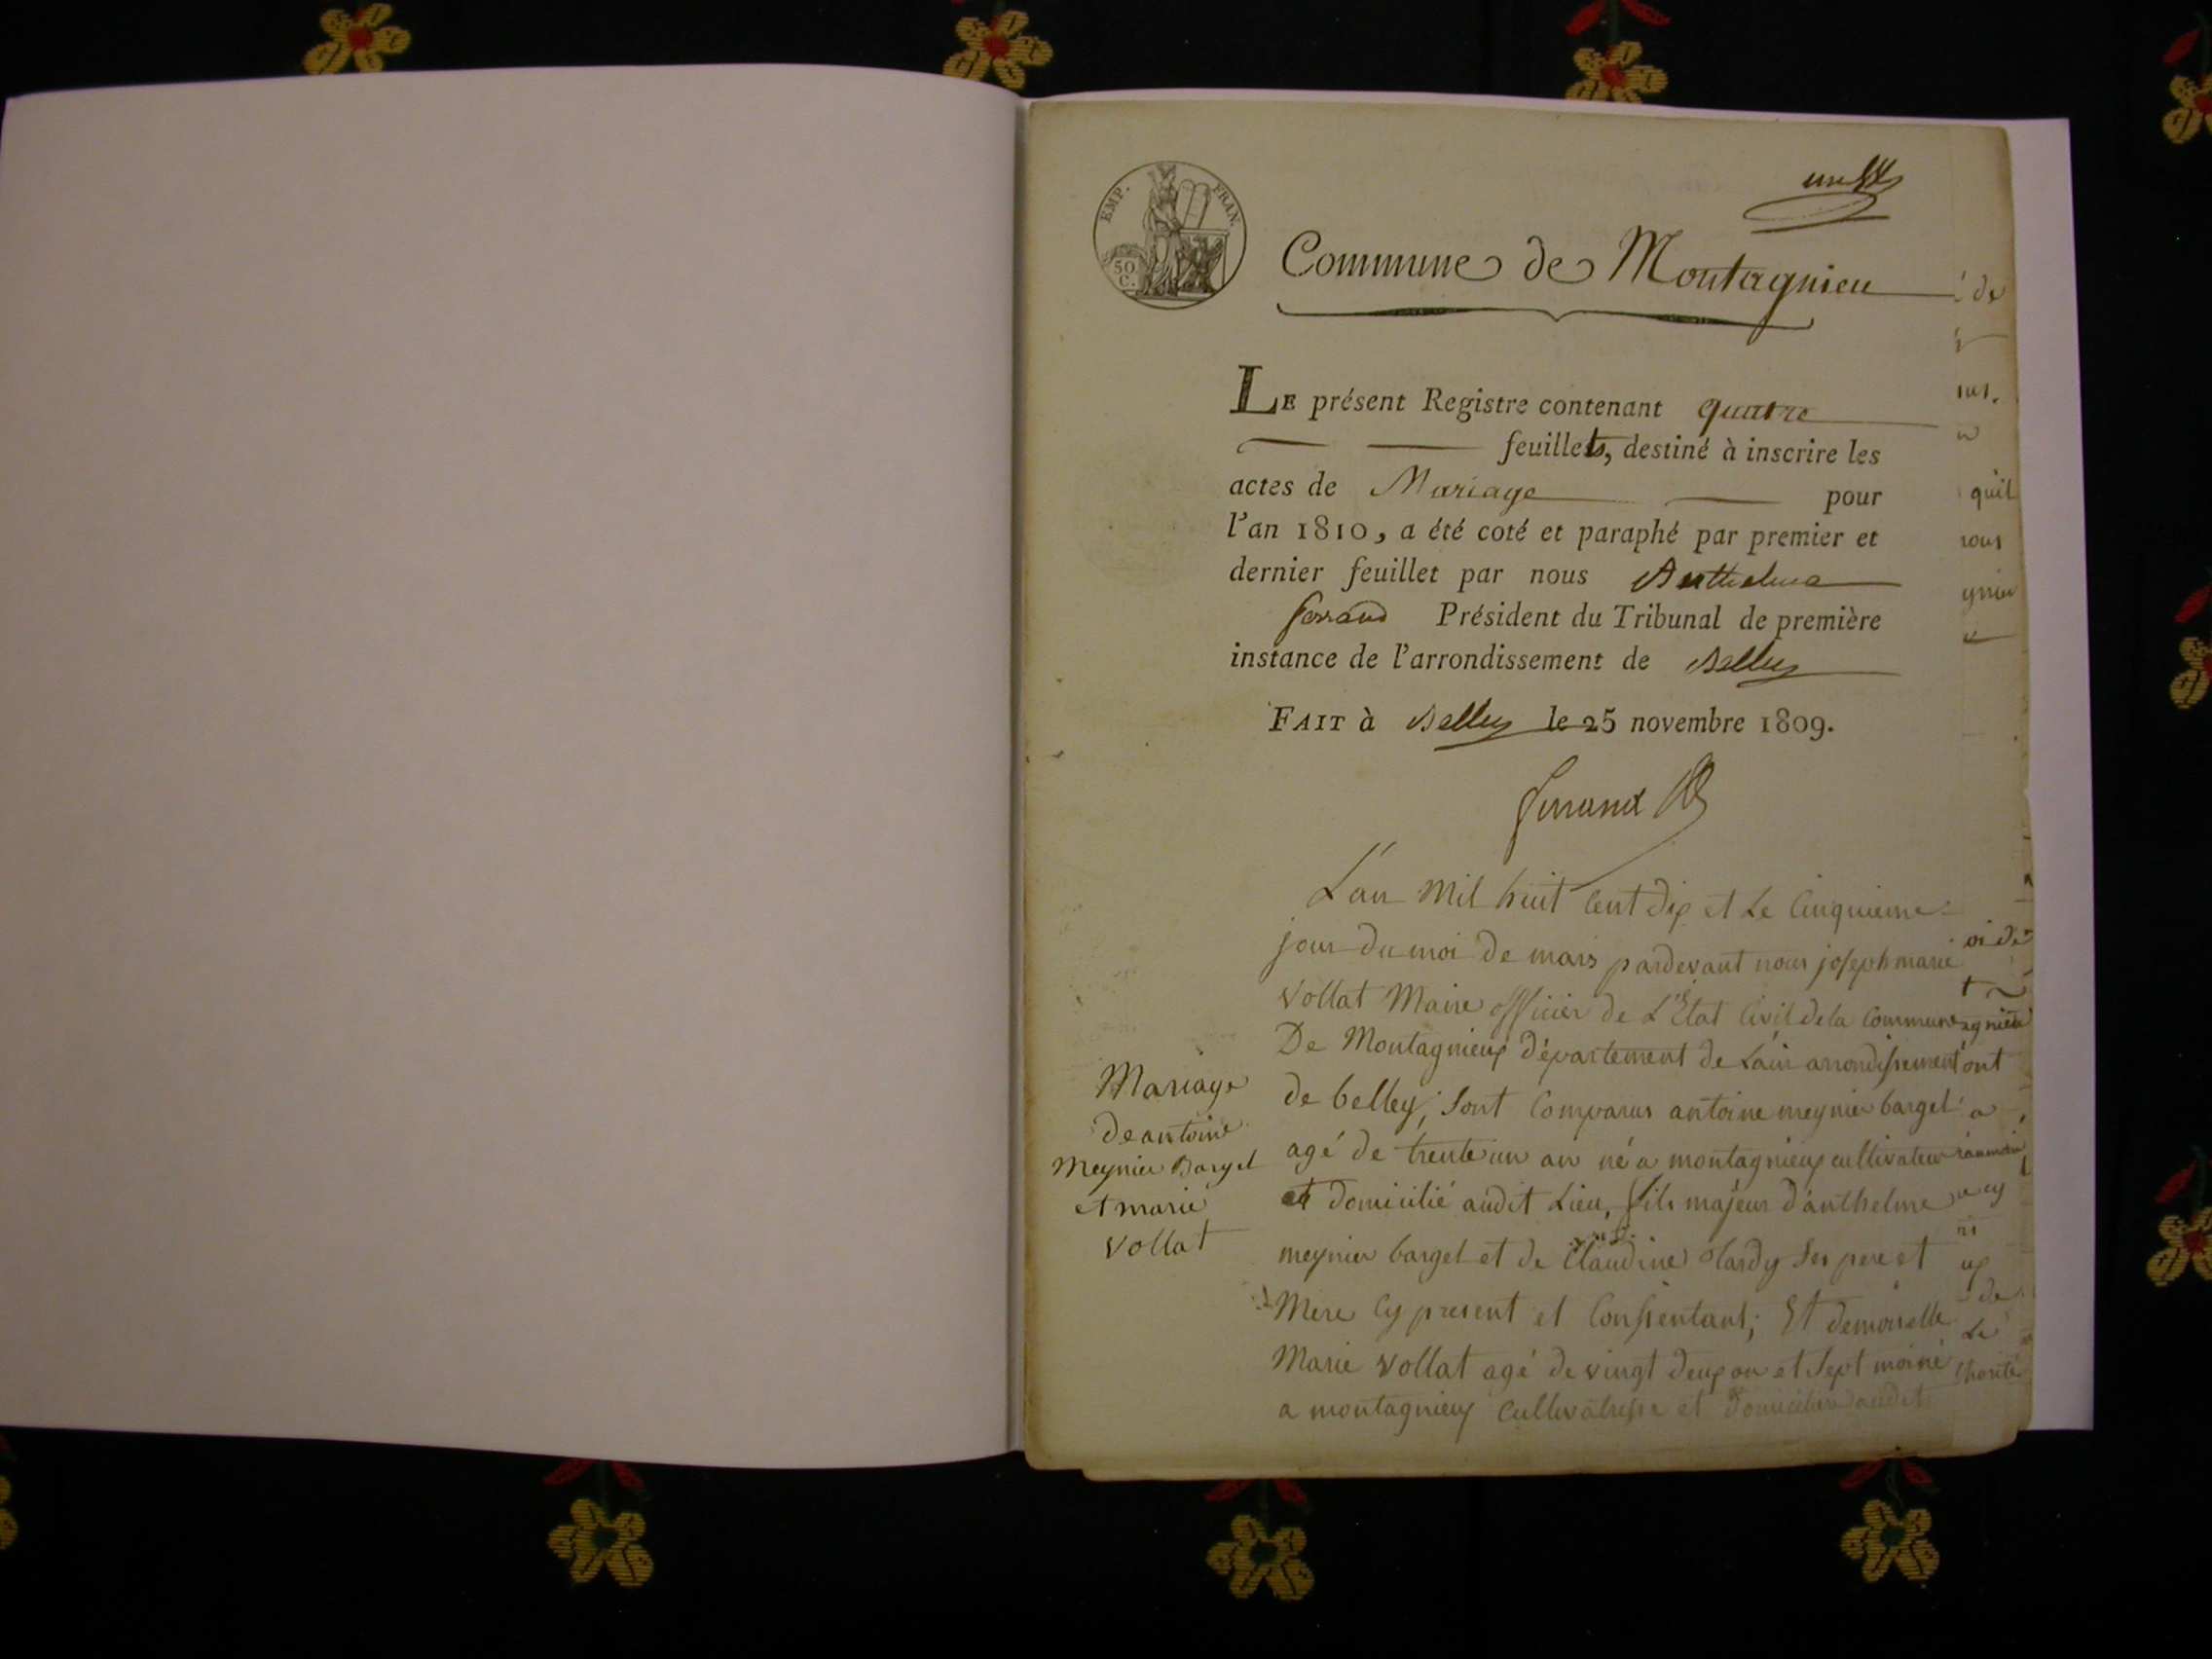 EMP. FRAN.
50
C.
Commune de Montagnieu
LE présent Registre contenant quatre
feuillets, destiné à inscrire les
actes de Mariage pour
l'an 1810, a été coté et paraphé par premier et
dernier feuillet par nous Anthelme
ferrand Président du Tribunal de première
instance de l'arrondissement de Belley
FAIT à Belley le 25 novembre 1809.
ferrand
L'an Mil huit Cent dix et Le Cinquieme
jour du moi de mars pardevant nous joseph marie
Vollat Maire officier de L'Etat Civil dela Commune
De Montagnieux département de Lain arrondissement
de belley, Sont Comparus antoine meynier barget
agé de trente un an né a montagnieux cultivateur
et Domicilié audit Lieu, fils majeur d'anthelme
meynier barget et de Claudine Hardy Ses pere et
Mere Cy present et Consentant; Et demoiselle
Marie Vollat agé de vingt deux an et Sept moi né
a montagnieux Cultivatrisse et Domiciliée audit
Mariage
de antoine
Meynier Barget
et marie
Vollat
de
quil
nous
gnieu
oi de
agnieu
ont
a
ux
de
Le